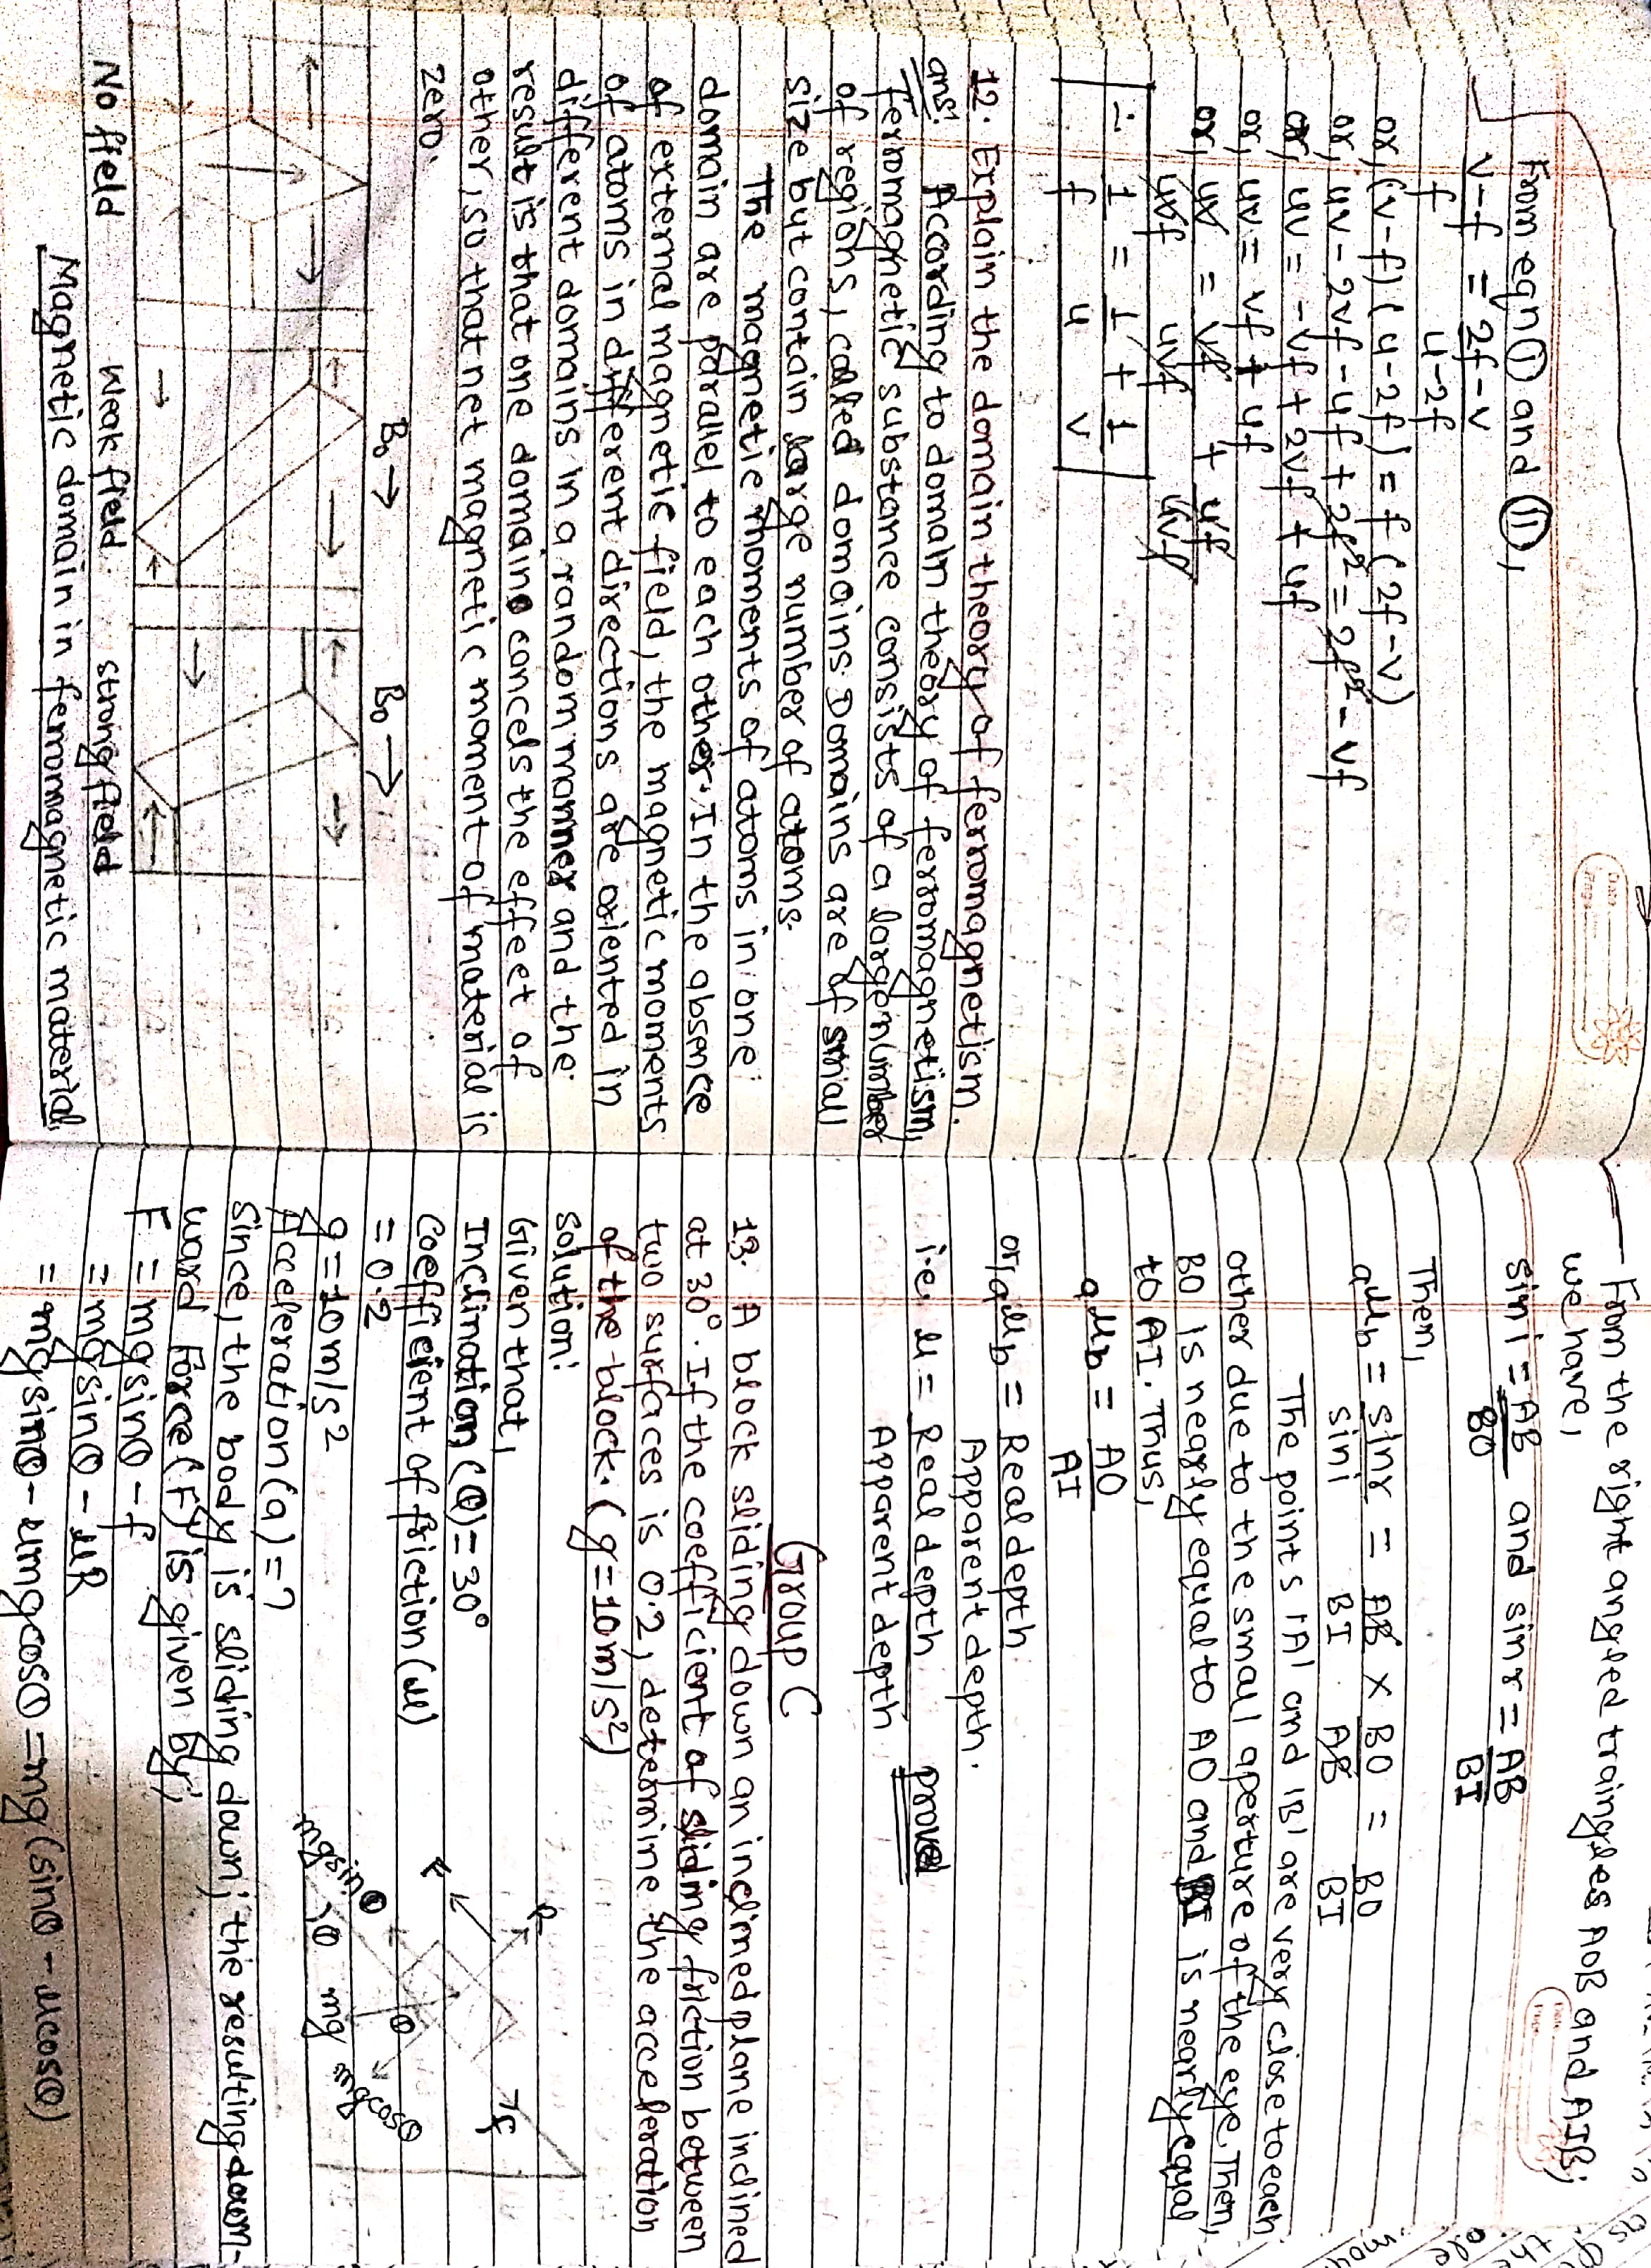 From eqn (I) and (II),
v-f/f = 2f-v/u-2f
or, (v-f) (u-2f) = f(2f-v)
or, uv-2vf-uf+2f² = 2f²-vf
or, uv = -vf+2vf+uf
or, uv = vf + uf
or, uv/uvf = vf/uvf + uf/uvf
∴ 1/f = 1/u + 1/v
12. Explain the domain theory of ferromagnetism.
ans: According to domain theory of ferromagnetism,
Ferromagnetic substance consists of a large number
of regions, called domains. Domains are of small
size but contain large number of atoms.
The magnetic moments of atoms in one
domain are parallel to each other. In the absence
of external magnetic field, the magnetic moments
of atoms in different directions are oriented in
different domains in a random manner and the
result is that one domain cancels the effect of
other, so that net magnetic moment of material is
zero.
B₀ → B₀ →
No field Weak field. strong field
Magnetic domain in ferromagnetic material.
From the right angled traingles AOB and AIB;
we have,
sin i = AB/BO and sin r = AB/BI
Then,
aμb = sin r/sin i = AB/BI × BO/AB = BO/BI
The points 'A' and 'B' are very close to each
other due to the small aperture of the eye. Then,
BO is nearly equal to AO and BI is nearly equal
to AI. Thus,
aμb = AO/AI
or, aμb = Real depth/Apparent depth.
i.e. μ = Real depth/Apparent depth proved
Group C
13. A block sliding down an inclined plane inclined
at 30°. If the coefficient of sliding friction between
two surfaces is 0.2, determine the acceleration
of the block. (g=10m/s²)
Solution:
Given that,
Inclination (θ) = 30°
Coefficient of friction (μ)
= 0.2
g = 10m/s²
Acceleration (a) = ?
R
f
F
mgsinθ
θ
θ
mg
mgcosθ
Since, the body is sliding down; the resulting down-
ward Force (F) is given by;
F = mgsinθ - f
= mgsinθ - μR
= mgsinθ - μmgcosθ = mg(sinθ - μcosθ)